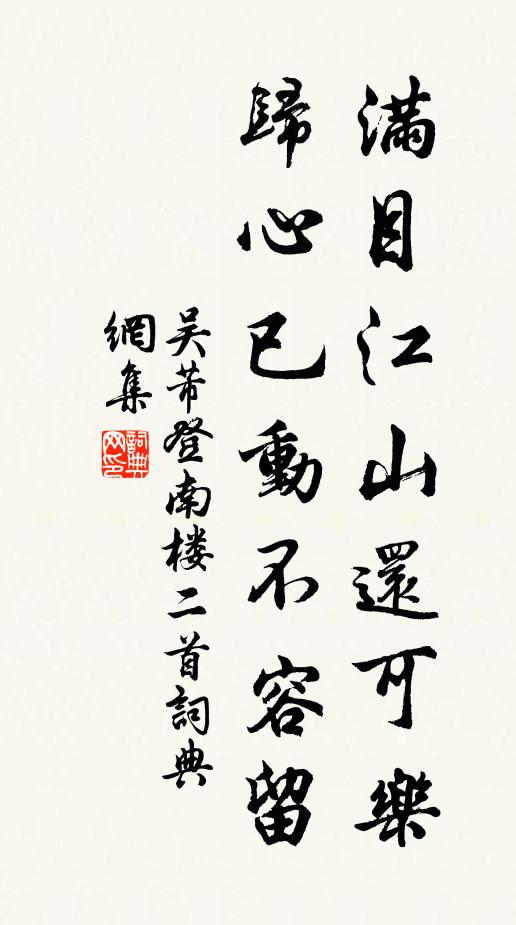 滿目江山還可樂
歸心已動不容留
吳芾登南楼二首詞典
網集
詞典网印